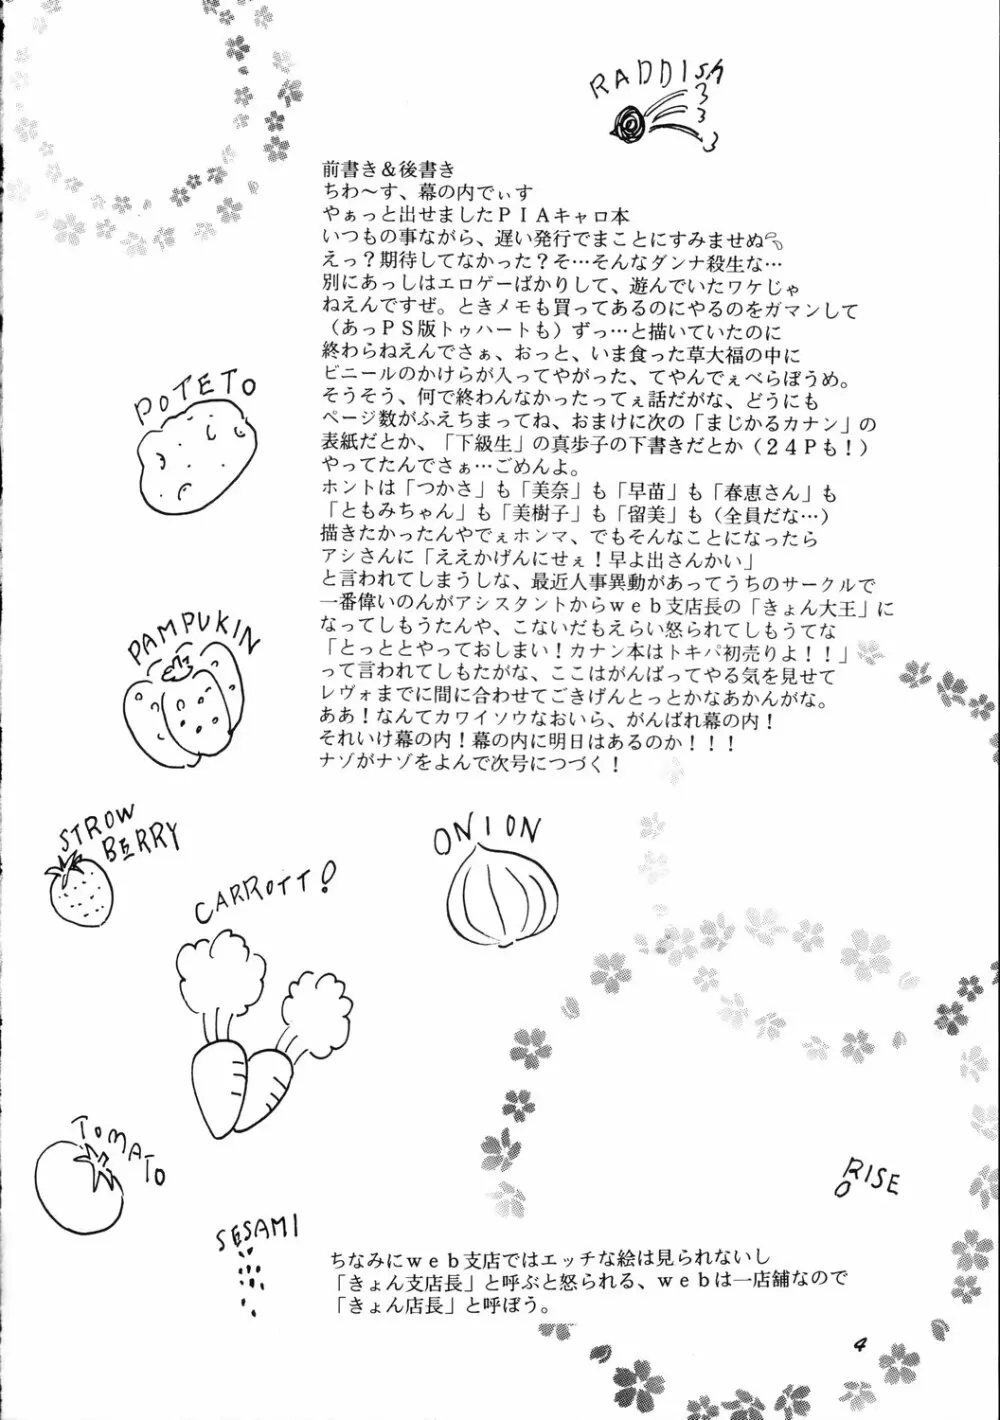 RADDISh
前書き＆後書き
ちわ～す、幕の内でぃす
やぁっと出せましたＰＩＡキャロ本
いつもの事ながら、遅い発行でまことにすみませぬ
えっ？期待してなかった？そ…そんなダンナ殺生な…
別にあっしはエロゲーばかりして、遊んでいたワケじゃ
ねえんですぜ。ときメモも買ってあるのにやるのをガマンして
（あっＰＳ版トゥハートも）ずっ…と描いていたのに
終わらねえんでさぁ、おっと、いま食った草大福の中に
ビニールのかけらが入ってやがった、てやんでぇべらぼうめ。
そうそう、何で終わんなかったってぇ話だがな、どうにも
ページ数がふえちまってね、おまけに次の「まじかるカナン」の
表紙だとか、「下級生」の真歩子の下書きだとか（２４Ｐも！）
やってたんでさぁ…ごめんよ。
ホントは「つかさ」も「美奈」も「早苗」も「春恵さん」も
「ともみちゃん」も「美樹子」も「留美」も（全員だな…）
描きたかったんやでぇホンマ、でもそんなことになったら
アシさんに「ええかげんにせぇ！早よ出さんかい」
と言われてしまうしな、最近人事異動があってうちのサークルで
一番偉いのんがアシスタントからｗｅｂ支店長の「きょん大王」に
なってしもうたんや、こないだもえらい怒られてしもうてな
「とっととやっておしまい！カナン本はトキパ初売りよ！！」
って言われてしもたがな、ここはがんばってやる気を見せて
レヴォまでに間に合わせてごきげんとっとかなあかんがな。
ああ！なんてカワイソウなおいら、がんばれ幕の内！
それいけ幕の内！幕の内に明日はあるのか！！！
ナゾがナゾをよんで次号につづく！
POTETO
PAMPUKIN
STROW
BERRY
CARROTT!
ONION
TOMATO
SESAMI
RISE
ちなみにｗｅｂ支店ではエッチな絵は見られないし
「きょん支店長」と呼ぶと怒られる、ｗｅｂは一店舗なので
「きょん店長」と呼ぼう。
4